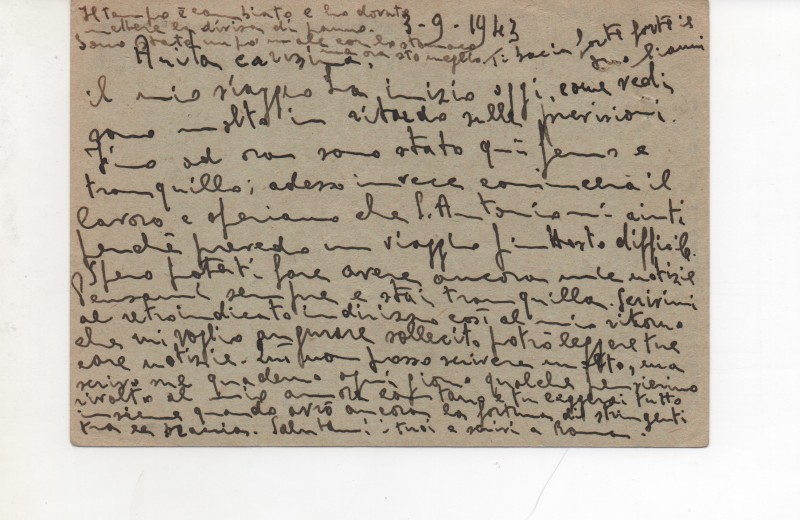 Il tempo è cambiato e ho dovuto
mettere la divisa di panno.
Sono stato un po' male con lo stomaco
ma ora sto meglio. Ti bacio forte forte il
tuo Gianni
3-9-1943
Anita carissima,
il mio viaggio ha inizio oggi, come vedi
sono molto in ritardo sulle previsioni.
Fino ad ora sono stato qui fermo e
tranquillo; adesso invece comincerà il
lavoro e speriamo che S. Antonio mi aiuti
perchè prevedo un viaggio piuttosto difficile.
Spero poterti fare avere ancora mie notizie
Pensami sempre e stai tranquilla. Scrivimi
al retroindicato indirizzo così al mio ritorno
che mi voglio augurare sollecito potrò leggere tue
care notizie. Qui non posso scrivere molto, ma
scrivo sul quaderno ogni giorno qualche pensierino
rivolto al mio amore lontano e tu leggerai tutto
insieme quando avrò ancora la fortuna di stringerti
tra le braccia. Salutami i tuoi e scrivi a Roma.